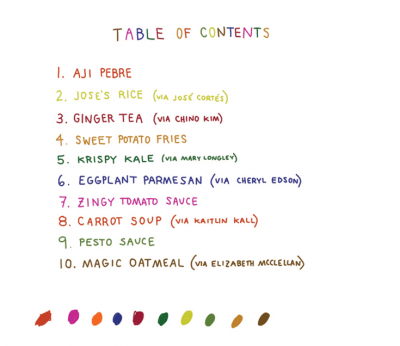 TABLE OF CONTENTS
1. AJI PEBRE
2. JOSE'S RICE (VIA JOSÉ CORTÉS)
3. GINGER TEA (VIA CHINO KIM)
4. SWEET POTATO FRIES
5. KRISPY KALE (VIA MARY LONGLEY)
6. EGGPLANT PARMESAN (VIA CHERYL EDSON)
7. ZINGY TOMATO SAUCE
8. CARROT SOUP (VIA KAITLIN KALL)
9. PESTO SAUCE
10. MAGIC OATMEAL (VIA ELIZABETH MCCLELLAN)